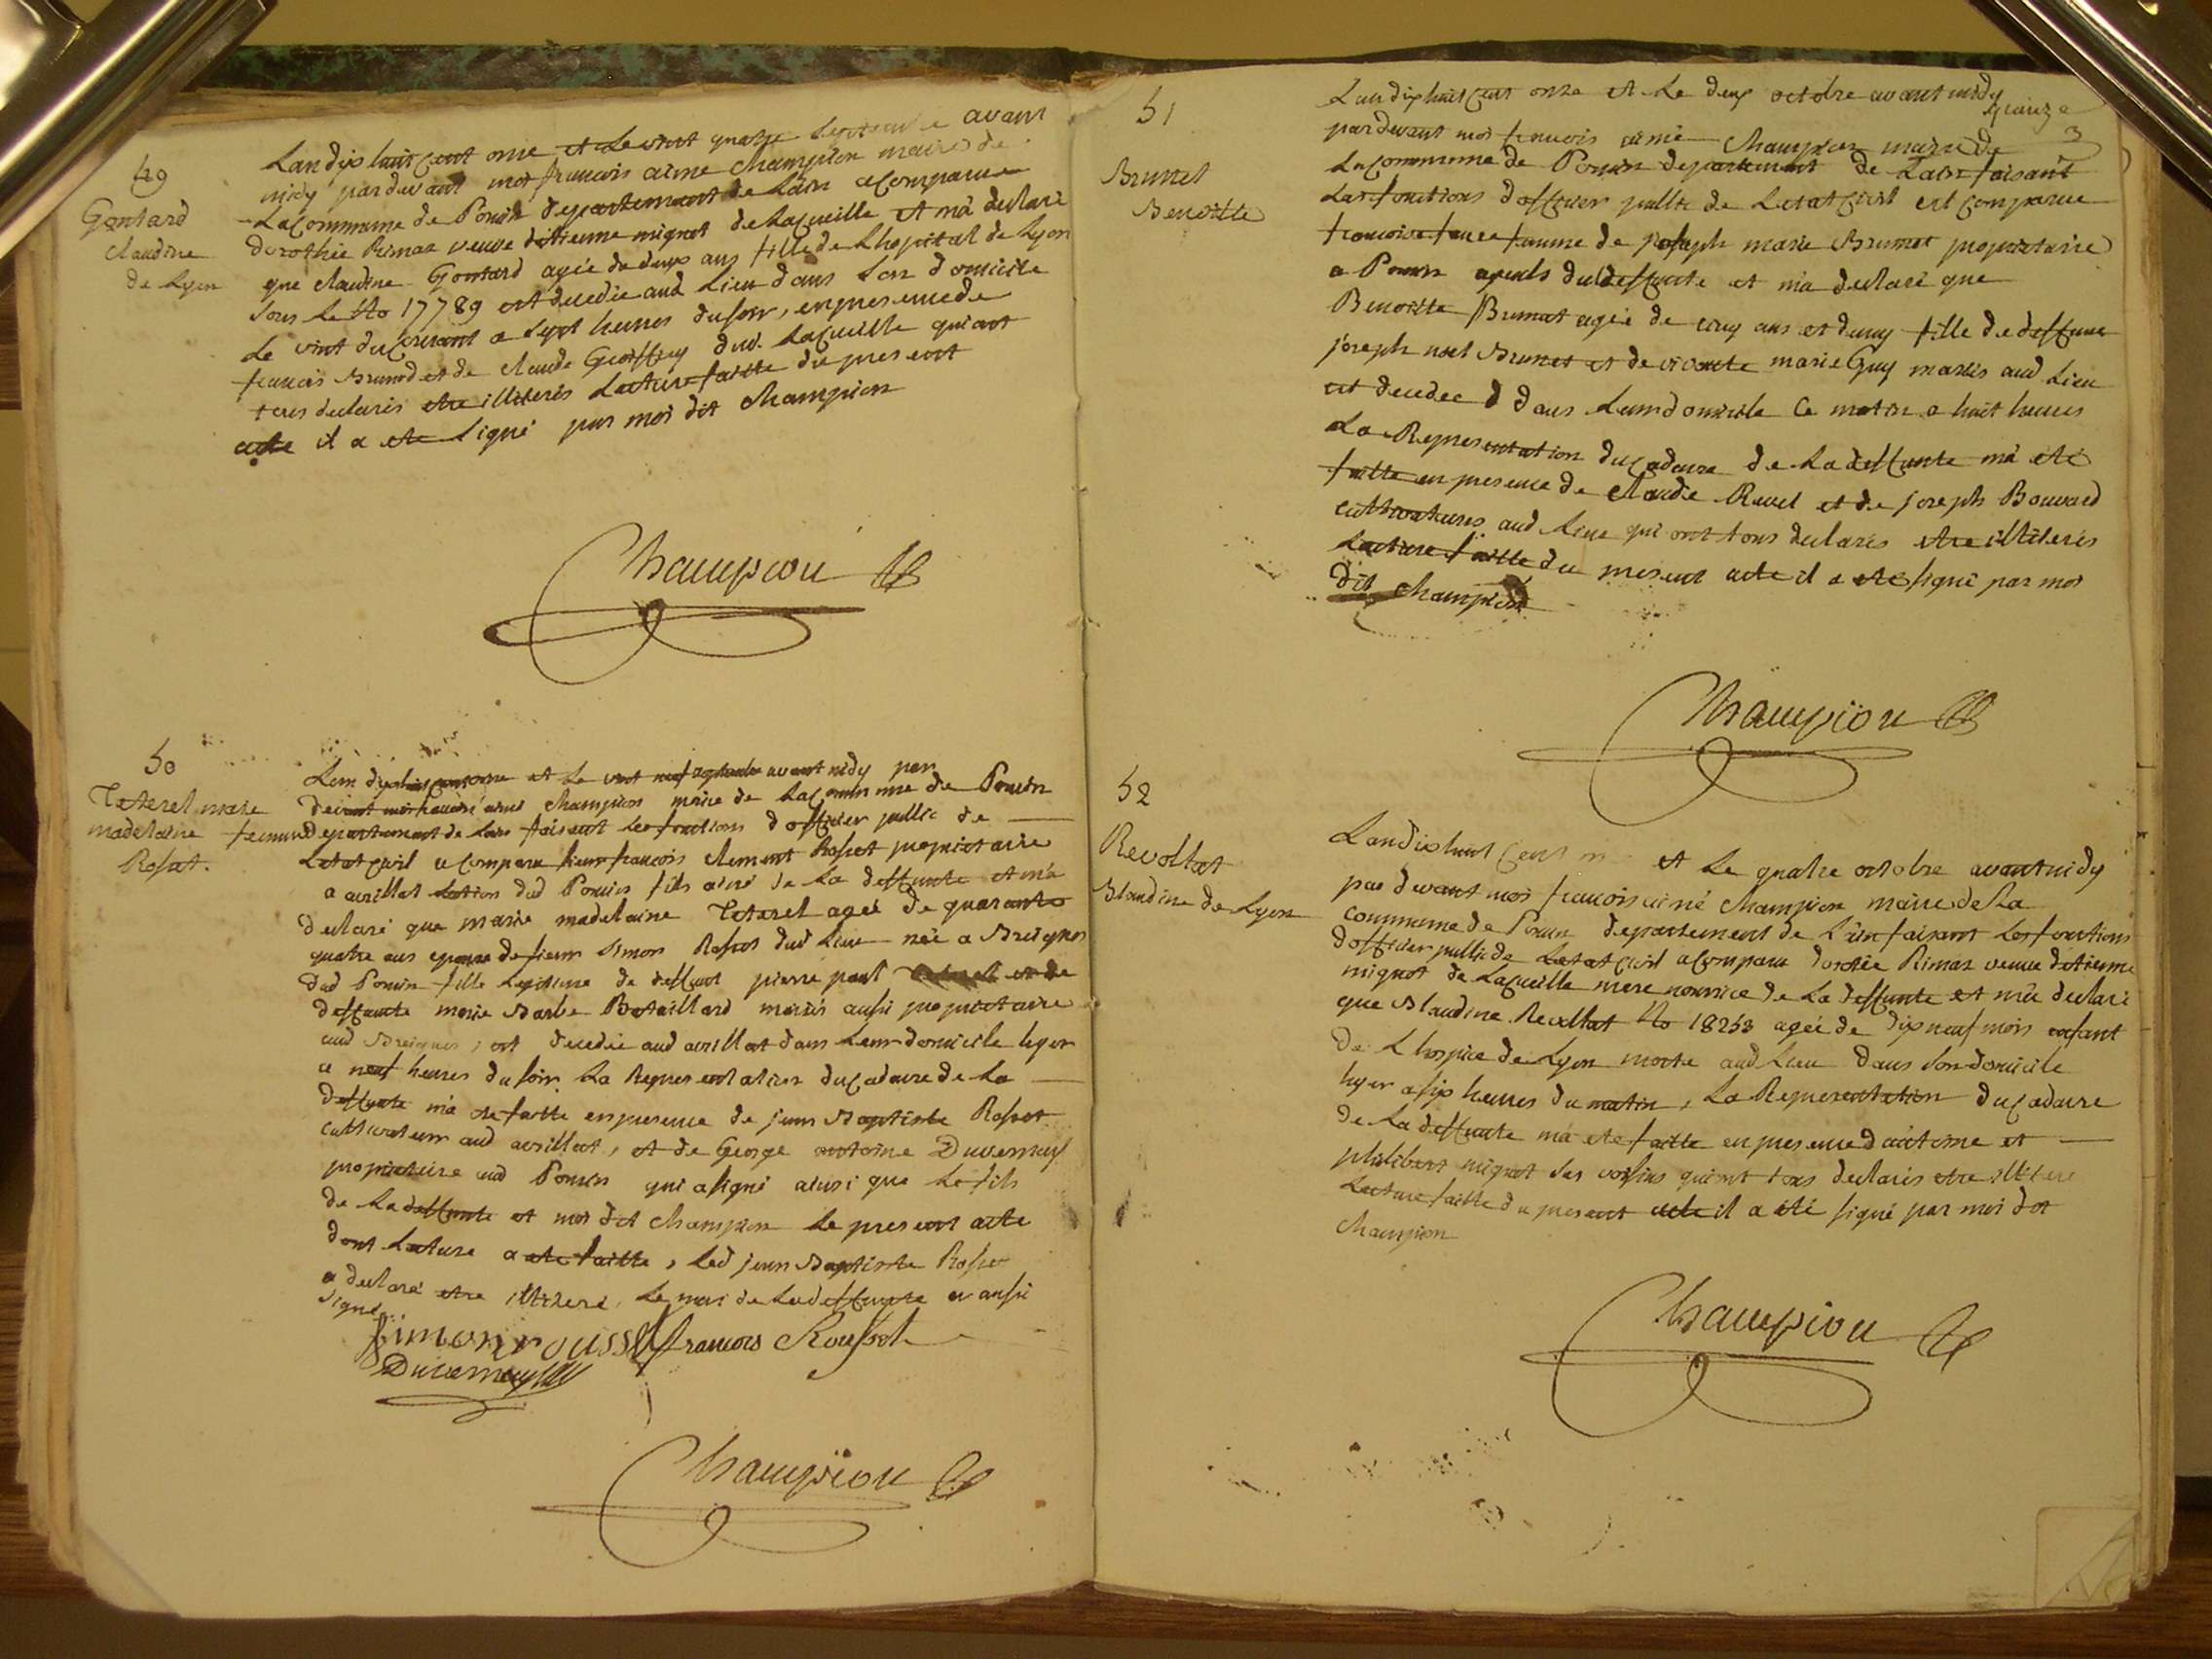 49
Gontard
claudine
de Lyon
Lan dix huit cent onze et le vint quatre septembre avant
midy pardevant moi francois aimé Champion maire de
La Commune de Poncin departement de Lain a comparue
dorothée Rimaz veuve detienne mignot de Lacueille et m'a declaré
que claudine Gontard agée de deux ans fille de Lhopital de Lyon
sous le No 17789 est decedée aud Lieu dans son domicile
le vint du courant a sept heures du soir, en presence de
francois Brunod et de claude Geoffray dud. Lacueille qui ont
tous declarés etre illiterés Lecture faitte du present
acte il a ete signé par moi dit Champion
Champion
50
Teterel marie
madelaine femme
Rosset.
Lan dix huit cent onze et le vint neuf septembre avant midy par
devant moi francois aimé Champion maire de La Commune de Poncin
departement de Lain faisant les fonctions dofficier public de
Letat civil a comparu sieur francois clement Rosset propriétaire
a avrillat section dud Poncin fils ainé de La deffunte et m'a
declaré que marie madelaine Teterel agée de quarante
quatre ans epouse de sieur simon Rosset dud Lieu née a Breignes
dud Poncin fille Legitime de deffunt pierre paul
deffunte marie Barbe Bataillard mariés aussi proprietaire
aud Breignes, est decedée aud avrillat dans Leur domicile hyer
a neuf heures du soir La Representation du Cadavre de La
deffunte m'a ete faitte en presence de jean Baptiste Rosset
cultivateur aud avrillat, et de George antoine Duvernay
propriétaire aud Poncin qui a signé ainsi que le fils
de La deffunte et moi dit Champion le present acte
dont Lecture a ete faitte, led jean Baptiste Rosset
a declaré etre illiteré, Le mari de La deffunte a aussi
signé
Simon rousset francois Rousset
Duvernay
Champion
51
Brunet
Benoitte
Lan dix huit cent onze et le deux octobre avant midy
quinze
3
pardevant moi francois aimé Champion maire de
La Commune de Poncin departement de Lain faisant
Les fonctions dofficier public de Letat civil est comparue
francoise femme de joseph marie Brunet proprietaire
a Poncin ayeuls de la deffunte et m'a declaré que
Benoitte Brunet agée de cinq ans et demy fille de deffunt
joseph noel Brunet et de vivante marie Guy mariés aud Lieu
est decedée dans Leur domicile Ce matin a huit heures
La Representation du Cadavre de La deffunte m'a eté
faitte en presence de claude Revel et de joseph Bouvard
cultivateurs aud Lieu qui ont tous declarés etre illiterés
Lecture faitte du present acte il a eté signé par moi
dit Champion
Champion
52
Revollat
Blandine de Lyon
Lan dix huit cent et le quatre octobre avant midy
par devant moi francois aimé Champion maire de La
commune de Poncin departement de Lain faisant Les fonctions
dofficier public de Letat civil a comparu dorotée Rimaz veuve detienne
mignot de Lacueille mere nourrice de La deffunte et m'a declaré
que Blandine Revollat No 18253 agée de dix neuf mois enfant
de Lhospice de Lyon morte aud Lieu dans son domicile
hyer a six heures du matin, La Representation du Cadavre
de La deffunte m'a ete faitte en presence dantoine et
philibert mignot ses voisins qui ont tous declarés etre illiteré
Lecture faitte du present acte il a été signé par moi dit
Champion
Champion